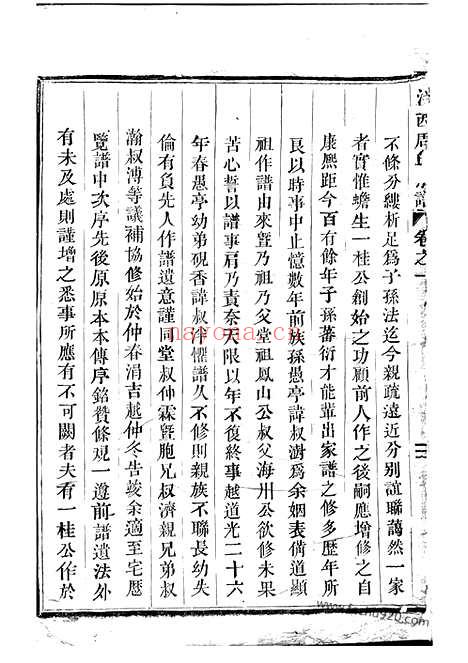 周氏
卷之一
不條分縷析足爲子孫法迄今親疏遠近分别誼聯藹然一家
者實惟蟾生一桂公創始之功顧前人作之後嗣應增修之自
康熙距今百有餘年子孫蕃衍才能輩出家譜之修多歷年所
良以時事中止憶數年前族孫愚亭諱叔澍爲余姻表倚道顯
祖作譜由來暨乃祖乃父堂祖鳳山公叔父海州公欲修未果
苦心誓以譜事肩乃責奈天限以年不復終事越道光二十六
年春愚亭幼弟硯香諱叔牛懼譜久不修則親族不聯長幼失
倫有負先人作譜遺意謹同堂叔仲霖暨胞兄叔濟親兄弟叔
瀚叔溥等議補協修始於仲春涓吉越仲冬告竣余適至宅歷
覽譜中次序先後原原本本傳序銘贊條观一遵前譜遺法外
有未及處則謹增之悉事所應有不可闕者夫看一桂公作於
nayona.cn
www.fozhu920.com